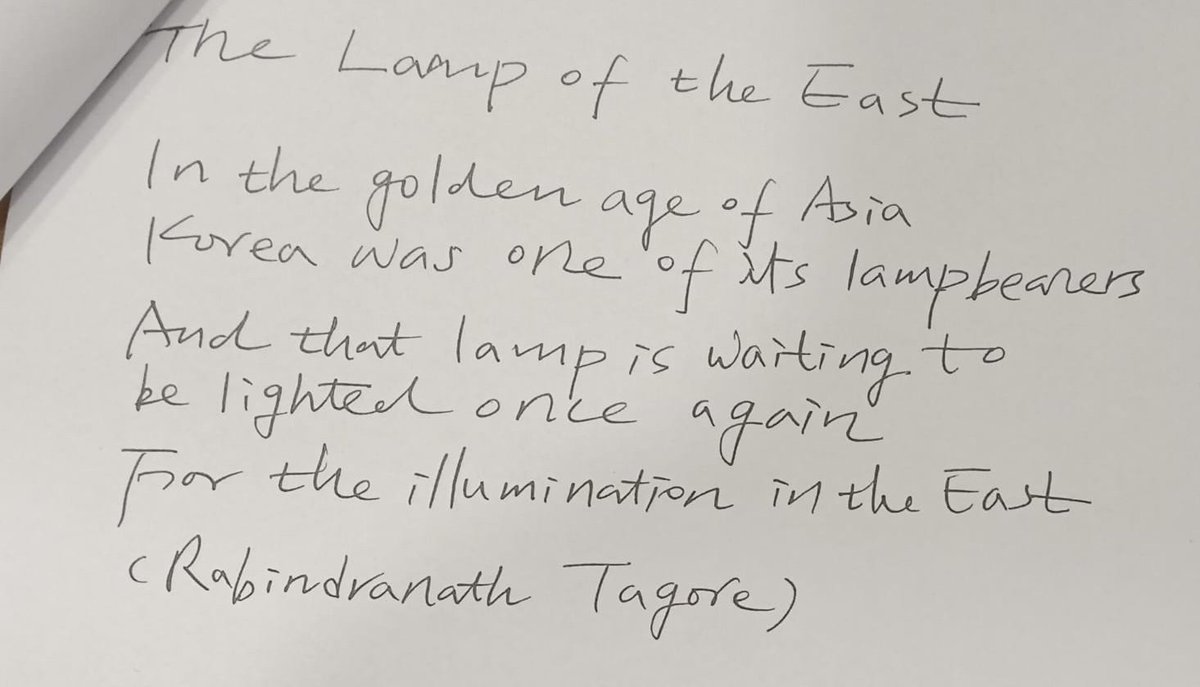 The Lamp of the East
In the golden age of Asia
Korea was one of its lampbearers
And that lamp is waiting to
be lighted once again
For the illumination in the East
(Rabindranath Tagore)